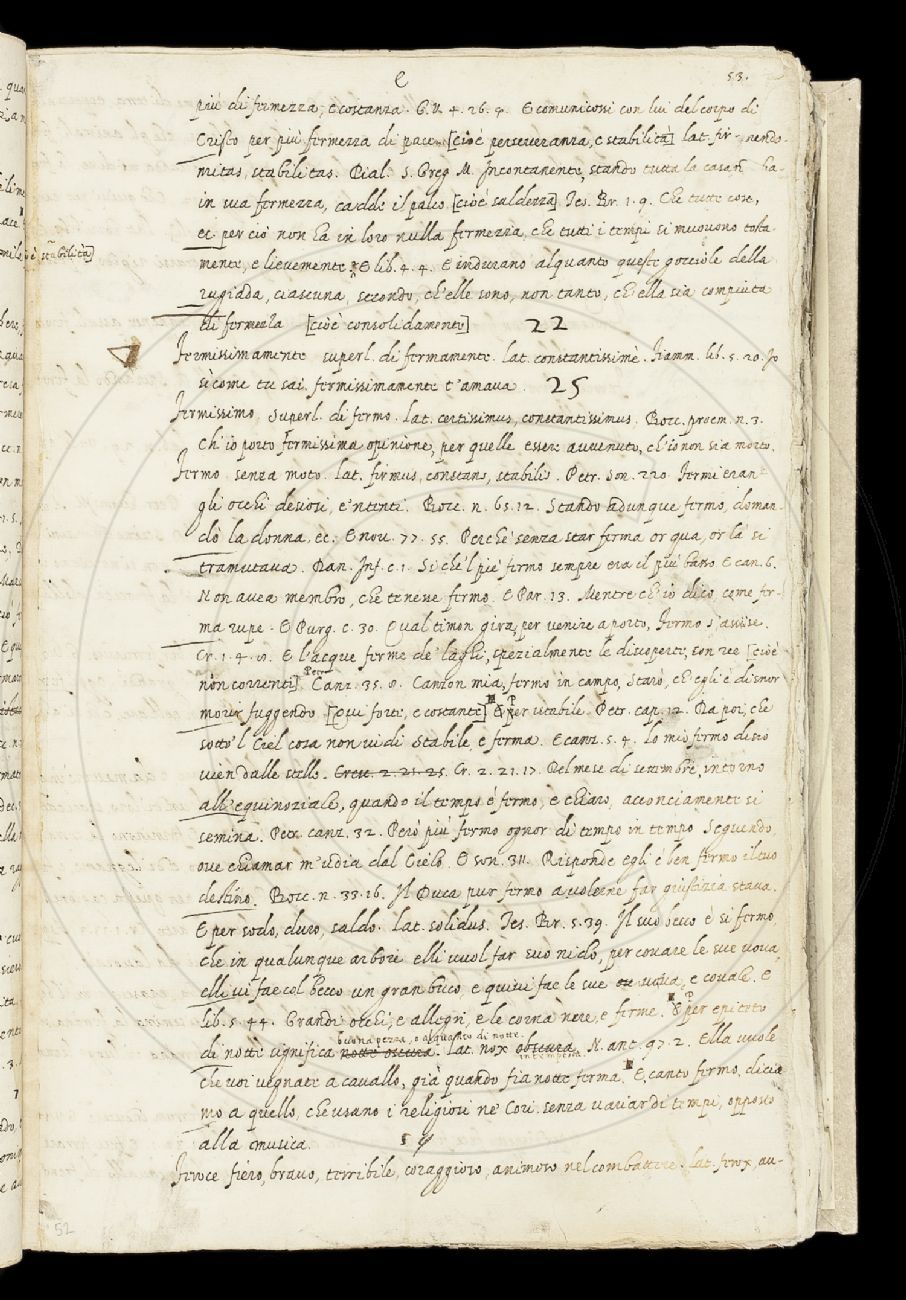 e
53.
più di fermezza, e costanza. G. V. 4. 26. 4. E comunicossi con lui del corpo di
Cristo per più fermezza di pace [cioè perseveranza, e stabilità] lat. fir-
mitas, stabilitas. Dial. S. Greg. M. Incontanente, stando tutta la casa
in sua fermezza, cadde il palco [cioè saldezza] Tes. Br. 1. 9. Che tutte cose,
et per ciò non ha in loro nulla fermezza, che tutti i tempi si muovono tosta
mente, e lievemente E lib. 4. 4. E indurano alquanto queste gocciole della
rugiada, ciascuna, secondo, ch'elle sono, non tanto, ch'ella sia compiuta
di fermezza [cioè consolidamento] 22
Fermissimamente superl. di fermamente. lat. constantissimè. Fiamm. lib. 5. 20. Io
sì come tu sai, fermissimamente t'amava. 25
Fermissimo. Superl. di fermo. lat. certissimus, constantissimus. Bocc. proem. n. 3.
Ch'io porto fermissima opinione, per quelle essere avvenuto, ch'io non sia morto.
Fermo. senza moto. lat. firmus, constans, stabilis. Petr. Son. 220. Fermi eran
gli occhi desiosi, e'ntenti. Bocc. n. 65. 12. Stando adunque fermo, doman-
dò la donna, ec. E nov. 77. 55. Perchè senza star ferma or qua, or là si
tramutava. Dan. Inf. c. 1. Si che'l piè fermo sempre era il più basso E can. 6.
Non avea membro, che tenesse fermo. E Par. 13. Mentre ch'io dico, come fer-
ma rupe. E Purg. c. 30. Qual timon gira, per venire a porto, Fermo s'affisse.
Cr. 1. 4. E l'acque ferme de' laghi, spezialmente le discoperte, son ree [cioè
non correnti] Petr. Canz. 35. 8. Canzon mia, fermo in campo, Starò, ch'egli è disnor
morir fuggendo [qui forte, e costante] E per istabile. Petr. cap. 12. Da poi, che
sotto'l Ciel cosa non vidi Stabile, e ferma. E canz. 5. 4. Lo mio fermo desio
vien dalle stelle. Cresc. 2. 21. 25. Cr. 2. 21. 17. Del mese di settembre, intorno
all'equinoziale, quando il tempo è fermo, e chiaro, acconciamente si
semina. Petr. canz. 32. Però più fermo ognor di tempo in tempo Seguendo,
ove chiamar m'udia dal Cielo. E son. 311. Risponde egli è ben fermo il tuo
destino. Bocc. n. 33. 16. Il Duca pur fermo a volerne far giustizia stava.
E per sodo, duro, saldo. Lat. solidus. Tes. Br. 5. 39. Il suo becco è si fermo,
che in qualunque arbore elli vuol far suo nido, per covare le sue uova,
elli vi fae col becco un gran buco, e quivi fae le sue uova, e covale. E
lib. 5. 44. Grandi occhi, e allegri, e le corna nere, e ferme. E per epiteto
buona pezza, o alquanto di notte.
di notte significa notte oscura. lat. nox obscura intempesta. N. ant. 97. 2. Ella vuole
che voi vegnate a cavallo, già quando fia notte ferma. E, canto fermo, dicia
mo a quello, che usano i religiosi ne' Cori senza variar di tempi, opposto
alla musica.
Feroce fiero, bravo, terribile, coraggioso, animoso nel combattere. Lat. ferox, au-
52